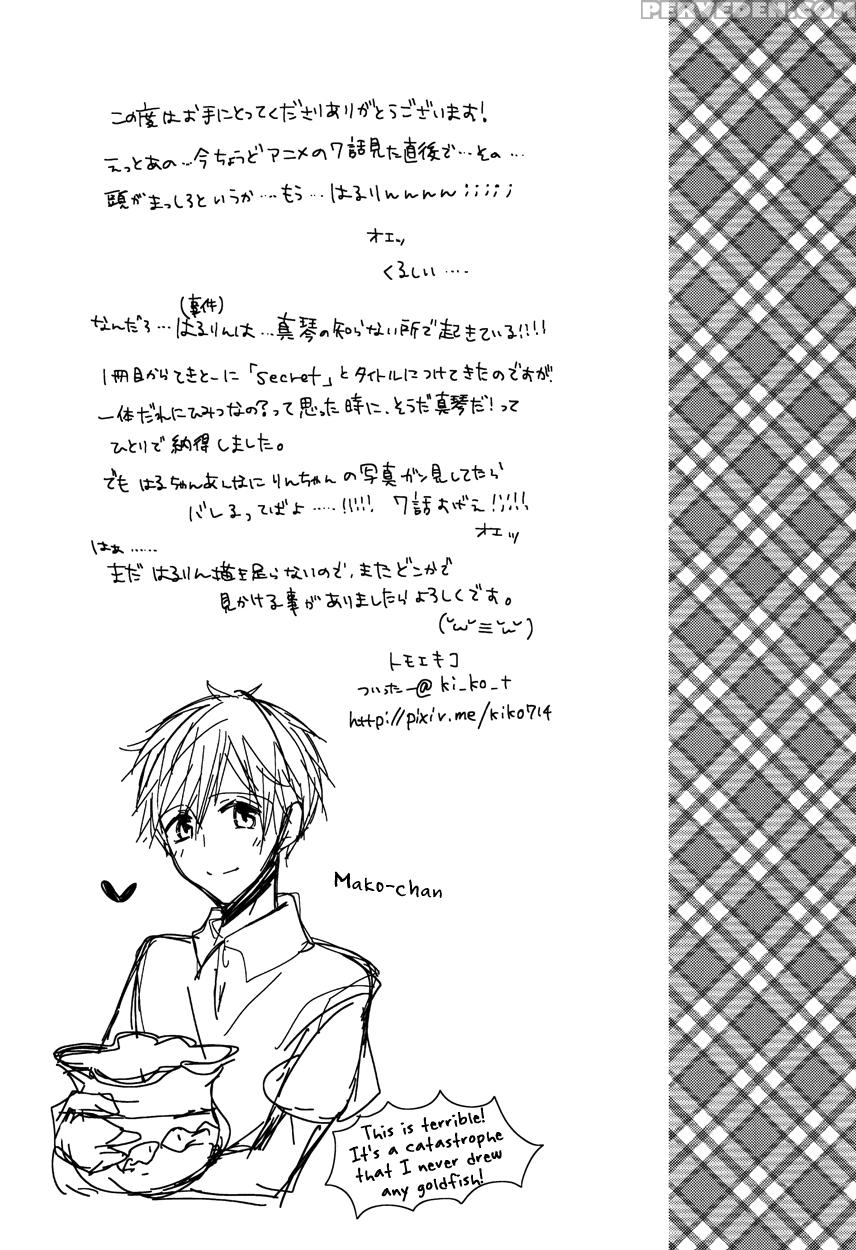 PERVEDEN.COM
この度はお手にとってくださりありがとうございます!
えっとあの…今ちょうどアニメの7話見た直後で…その…
頭がまっしろというか…もう…はるりんんんん;;;;;
オエッ
くるしい….
(事件)
なんだろ…はるりんは…真琴の知らない所で起きている!!!!
1冊目からてきとーに「secret」とタイトルにつけてきたのですが、
一体だれにひみつなの?って思った時に、そうだ真琴だ!って
ひとりで納得しました。
でも はるちゃんあんなに りんちゃんの写真ガン見してたら
バレるってばよ……!!!!! 7話おべえ!!!!!
オエッ
はぁ……
まだ はるりん描き足らないので、またどこかで
見かける事がありましたらよろしくです。
(˘ω˘≡˘ω˘)
トモエキコ
ついったー@ki_ko_t
http://pixiv.me/kiko714
Mako-chan
This is terrible!
It's a catastrophe
that I never drew
any goldfish!